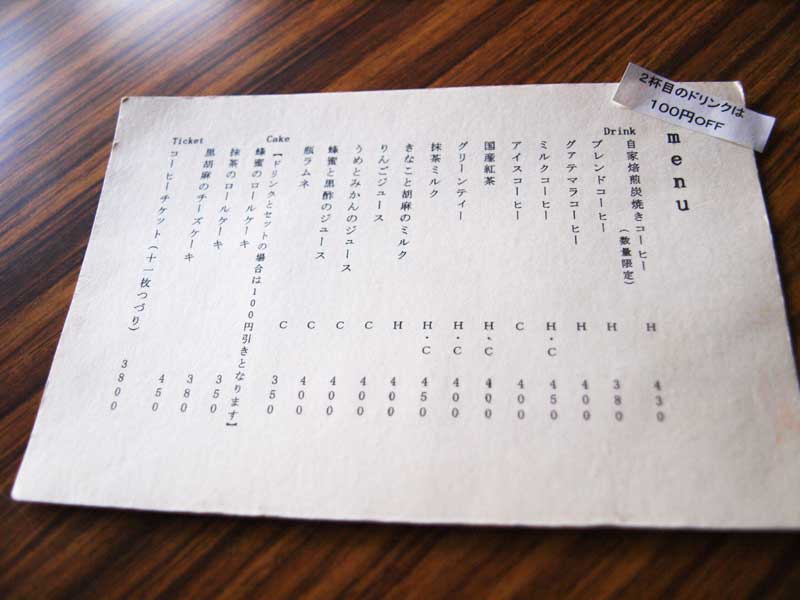 2杯目のドリンクは
100円OFF
menu
Drink
自家焙煎炭焼きコーヒー(数量限定) H 430
ブレンドコーヒー H 380
グァテマラコーヒー H 400
ミルクコーヒー H・C 450
アイスコーヒー C 400
国産紅茶 H・C 400
グリーンティー H・C 400
抹茶ミルク H・C 450
きなこと胡麻のミルク H 400
りんごジュース C 400
うめとみかんのジュース C 400
蜂蜜と黒酢のジュース C 400
瓶ラムネ C 350
Cake
【ドリンクとセットの場合は100円引きとなります】
蜂蜜のロールケーキ 350
抹茶のロールケーキ 380
黒胡麻のチーズケーキ 450
Ticket
コーヒーチケット(十一枚つづり) 3800